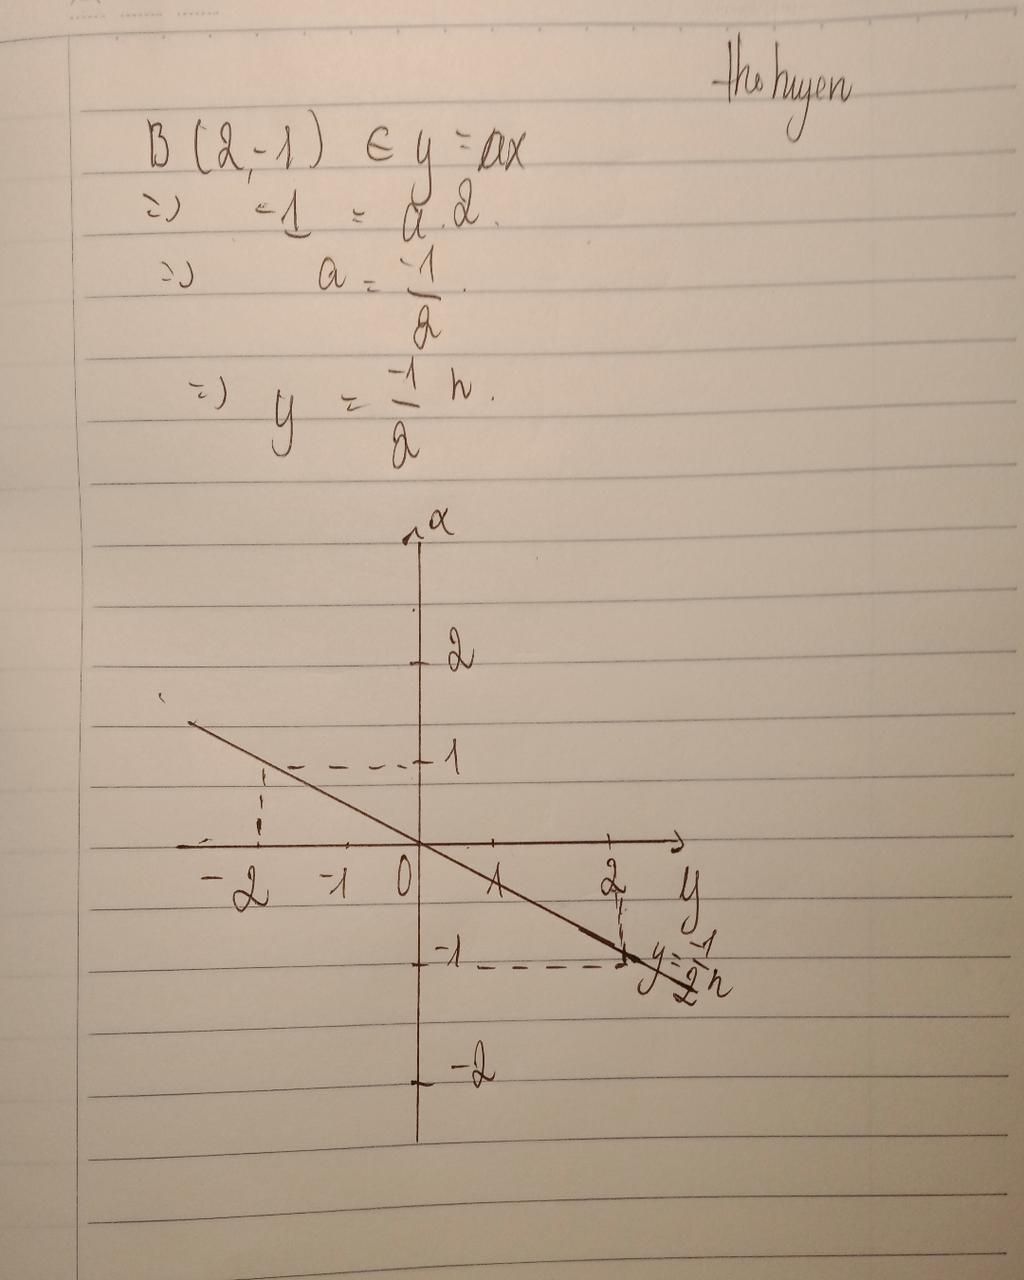 thohuyen
B (2,-1) ∈ y = ax
=> -1 = a.2.
=> a = -1/2.
=> y = -1/2 x.
x
2
1
-2 -1 0 1 2 y
-1
y = -1/2 x
-2